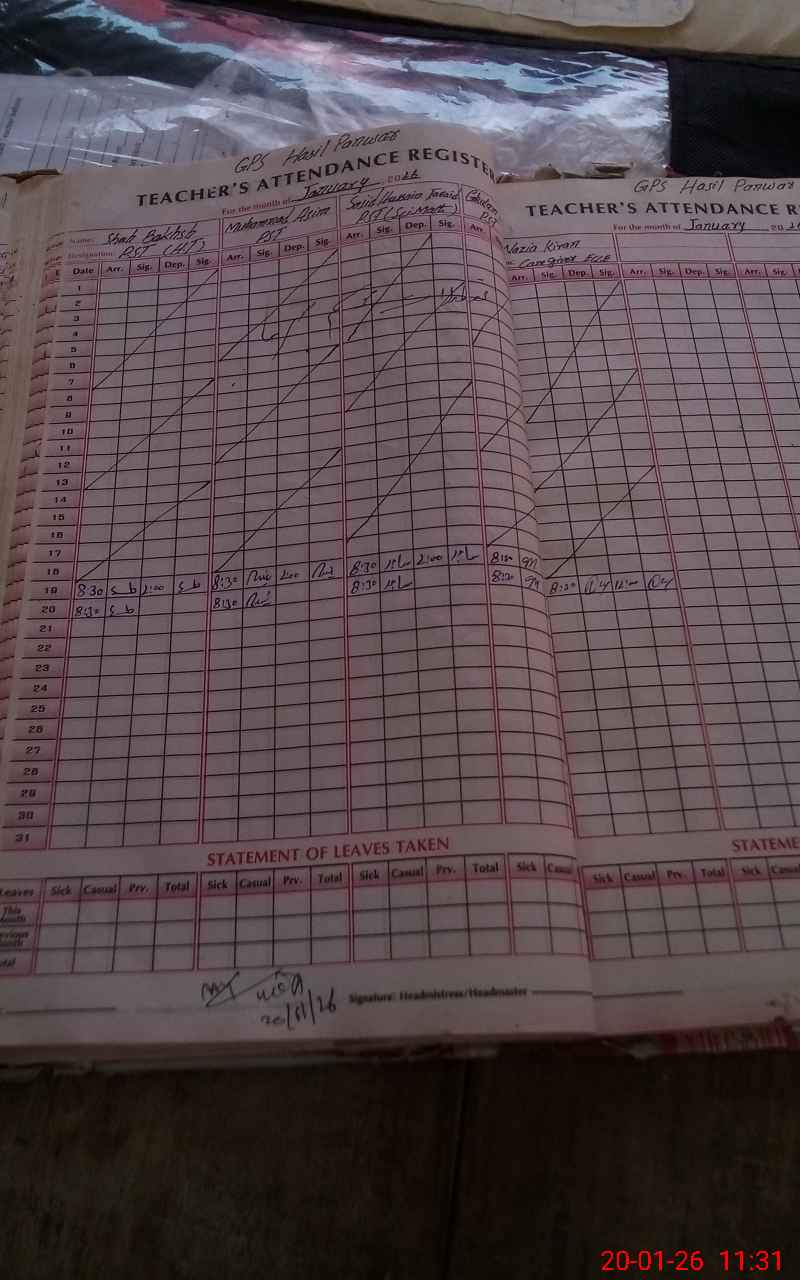 GPS Hasil Panwar
TEACHER'S ATTENDANCE REGISTER
For the month of January 2026
Name: Shah Bakhsh Muhammad Asim Sajid Hussain Ghulam
Designation: PST (HT) PST PST (Sci Math) PST
Date Arr. Sig. Dep. Sig. Arr. Sig. Dep. Sig. Arr. Sig. Dep. Sig. Arr.
1
2
3
4
5
6
7
8
9
10
11
12
13
14
15
16
17
18
19 8:30 2:00 8:30 2:00 8:30 2:00 8:30
20 8:30 8:30 8:30 8:30
21
22
23
24
25
26
27
28
29
30
31
STATEMENT OF LEAVES TAKEN
Leaves Sick Casual Prv. Total Sick Casual Prv. Total Sick Casual Prv. Total Sick Casual
This Month
Previous Month
Total
Signature: Headmistress/Headmaster
20/01/26
GPS Hasil Panwar
TEACHER'S ATTENDANCE R
For the month of January 20
Nazia Kiran
Caregiver ECCE
Arr. Sig. Dep. Sig. Arr. Sig. Dep. Sig. Arr. Sig.
8:30 12:00
STATEME
Sick Casual Prv. Total Sick Casual
20-01-26 11:31